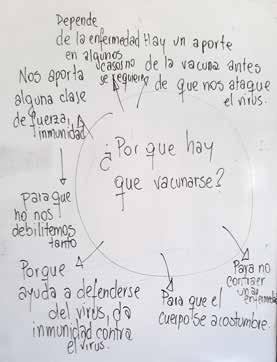 Depende
de la enfermedad
en algunos
casos no
se requiere
Hay un aporte
de la vacuna antes
de que nos ataque
el virus.
Nos aporta
alguna clase
de fuerza,
inmunidad
¿Por que hay
que vacunarse?
Para que
no nos
debilitemos
tanto
Porque
ayuda a defenderse
del virus, da
inmunidad contra
el virus.
Para que el
cuerpo se acostumbre.
Para no
contraer
una
enfermedad